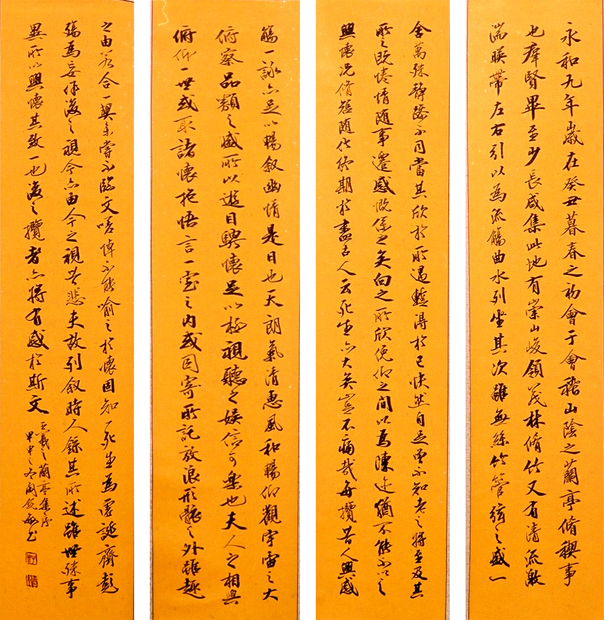 永和九年歲在癸丑暮春之初會于會稽山陰之蘭亭脩禊事
也群賢畢至少長咸集此地有崇山峻領茂林脩竹又有清流激
湍暎帶左右引以為流觴曲水列坐其次雖無絲竹管絃之盛一
舍萬殊靜躁不同當其欣於所遇蹔得於己快然自足曾不知老之將至及其
所之既惓情隨事遷感慨係之矣向之所欣俛仰之間以為陳迹猶不能不以之
興懷況脩短隨化終期於盡古人云死生亦大矣豈不痛哉每攬昔人興感
觴一詠亦足以暢敘幽情是日也天朗氣清惠風和暢仰觀宇宙之大
俯察品類之盛所以遊目騁懷足以極視聽之娛信可樂也夫人之相與
俯仰一世或取諸懷抱悟言一室之內或因寄所託放浪形骸之外雖趣
之由若合一契未嘗不臨文嗟悼不能喻之於懷固知一死生為虛誕齊彭
殤為妄作後之視今亦由今之視昔悲夫故列敘時人錄其所述雖世殊事
異所以興懷其致一也後之攬者亦將有感於斯文
王羲之蘭亭集序
甲申
書